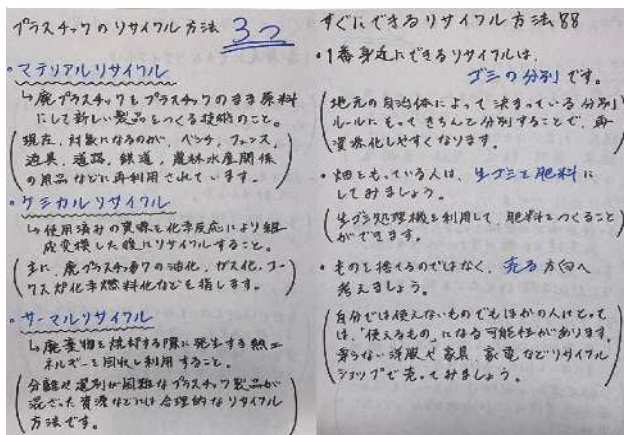 プラスチックのリサイクル方法 3つ
・マテリアルリサイクル
↳廃プラスチックをプラスチックのまま原料
にして新しい製品をつくる技術のこと。
(現在、対象になるのが、ベンチ、フェンス、
遊具、道路、鉄道、農林水産関係
の用品などに再利用されています。)
・ケミカルリサイクル
↳使用済みの資源を化学反応により組
成変換した後にリサイクルすること。
(主に、廃プラスチックの油化、ガス化、コー
クス炉化学燃料化などを指します。)
・サーマルリサイクル
↳廃棄物を焼却する際に発生する熱エ
ネルギーを回収し利用すること。
(分離や選別が困難なプラスチック製品が
混ざった資源などには合理的なリサイクル
方法です。)
すぐにできるリサイクル方法
・1番身近にできるリサイクルは、
ゴミの分別です。
(地元の自治体によって決まっている分別
ルールにそってきちんと分別することで、再
資源化しやすくなります。)
・畑をもっている人は、生ゴミを肥料に
してみましょう。
(生ゴミ処理機を利用して、肥料をつくること
ができます。)
・ものを捨てるのではなく、売る方向へ
考えましょう。
(自分では使えないものでもほかの人にとって
は、「使えるもの」になる可能性があります。
着ない洋服や家具、家電などリサイクル
ショップで売ってみましょう。)